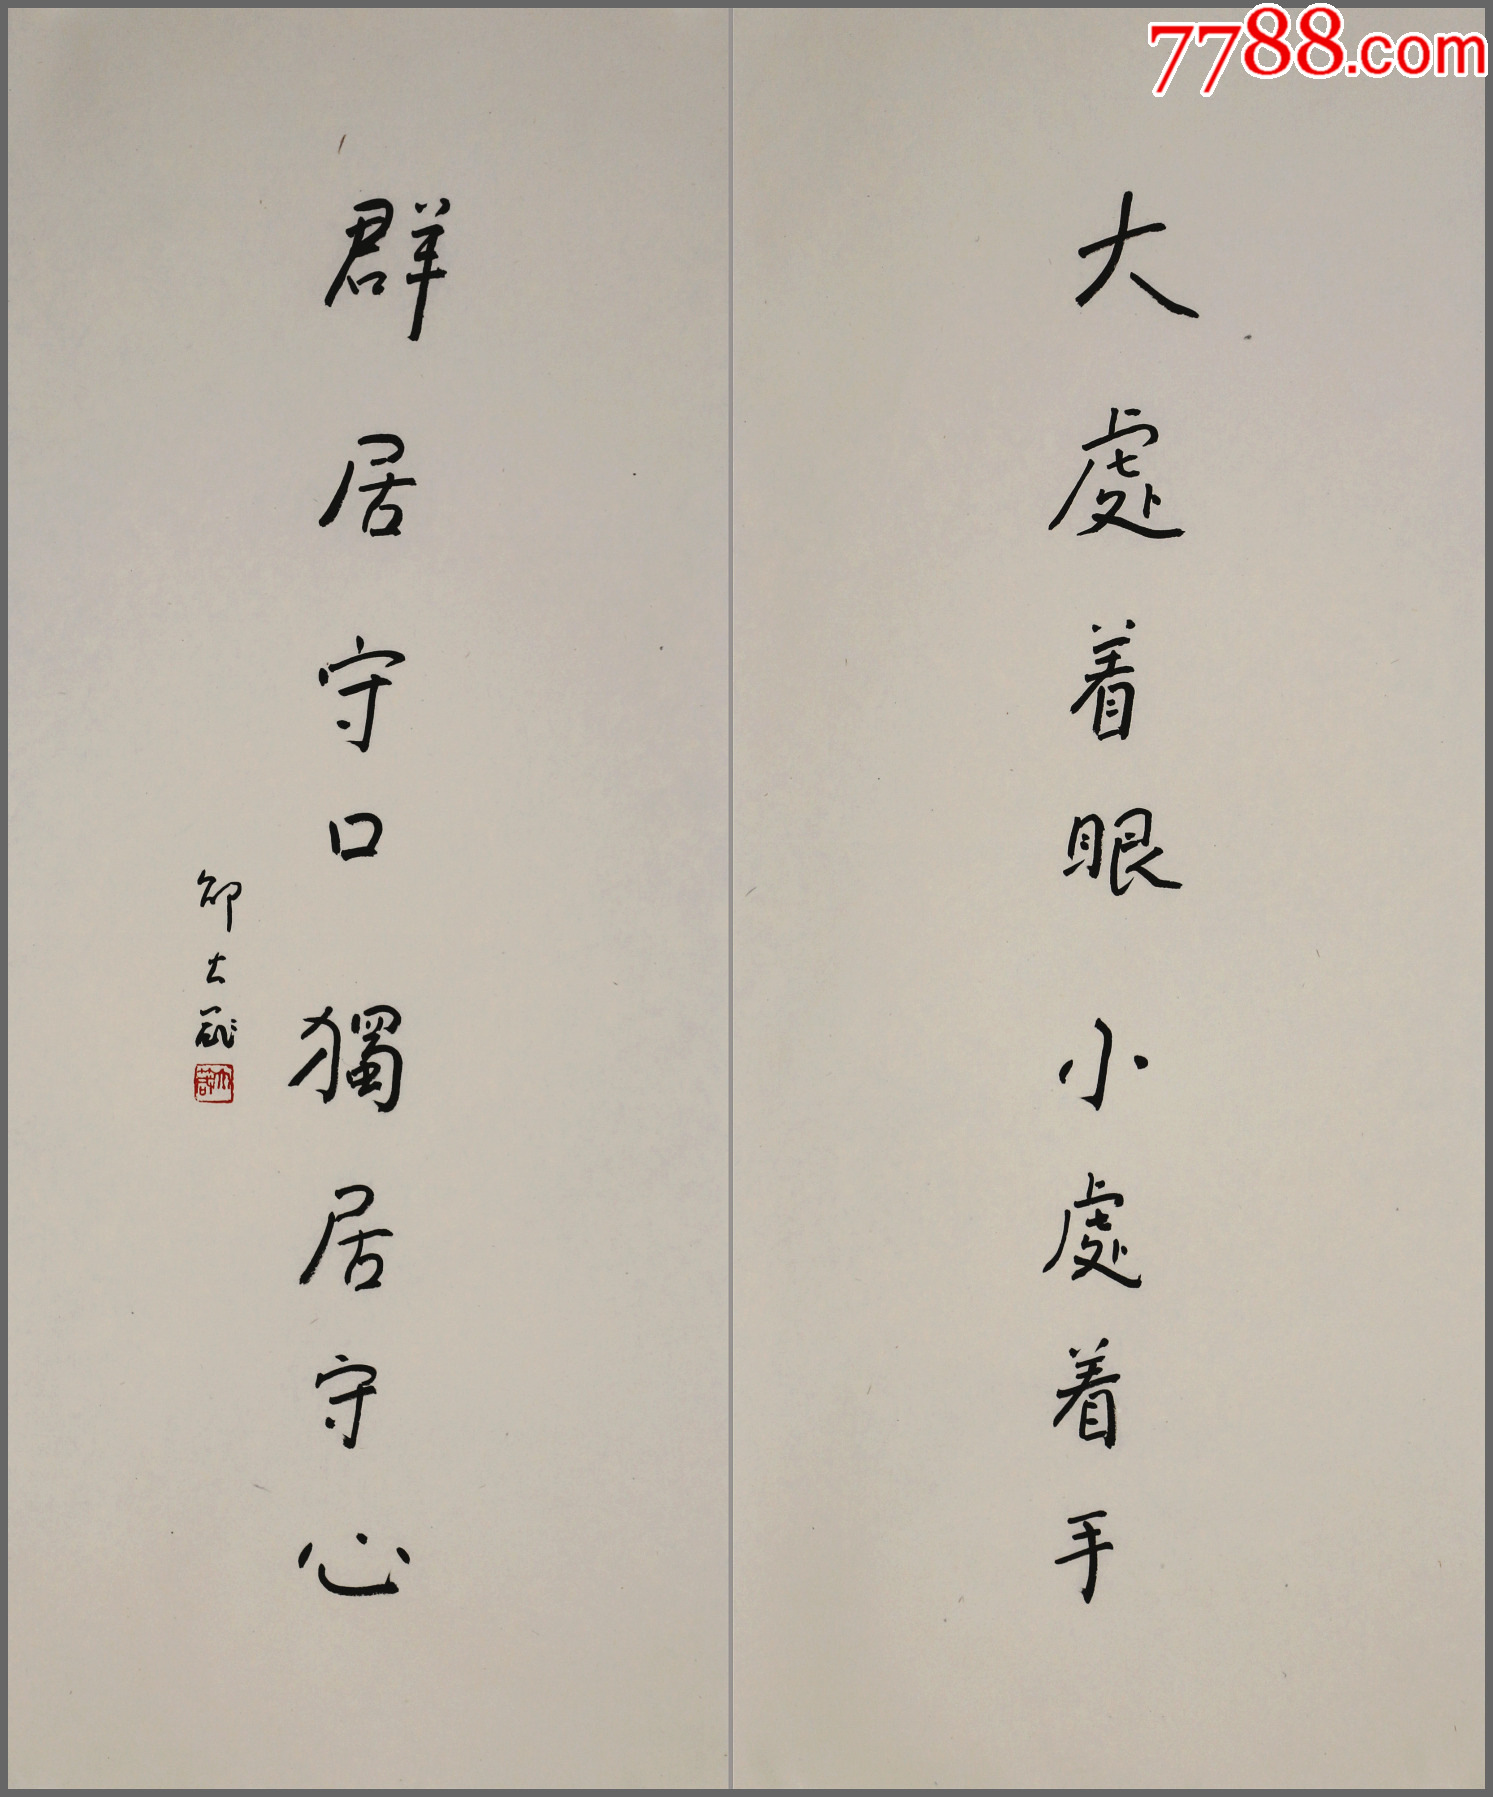 7788.com
大處着眼小處着手
群居守口獨居守心